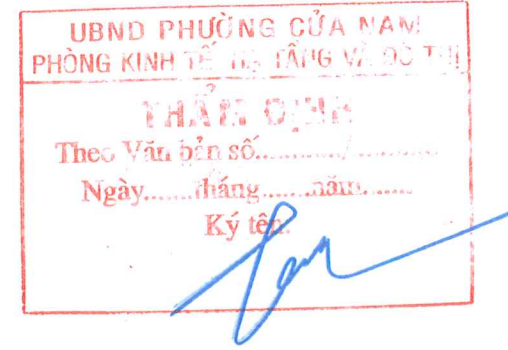 UBND PHƯỜNG CỬA NAM
PHÒNG KINH TẾ HẠ TẦNG VÀ ĐÔ THỊ
THẨM ĐỊNH
Theo Văn bản số............/..............
Ngày.......tháng.......năm........
Ký tên: